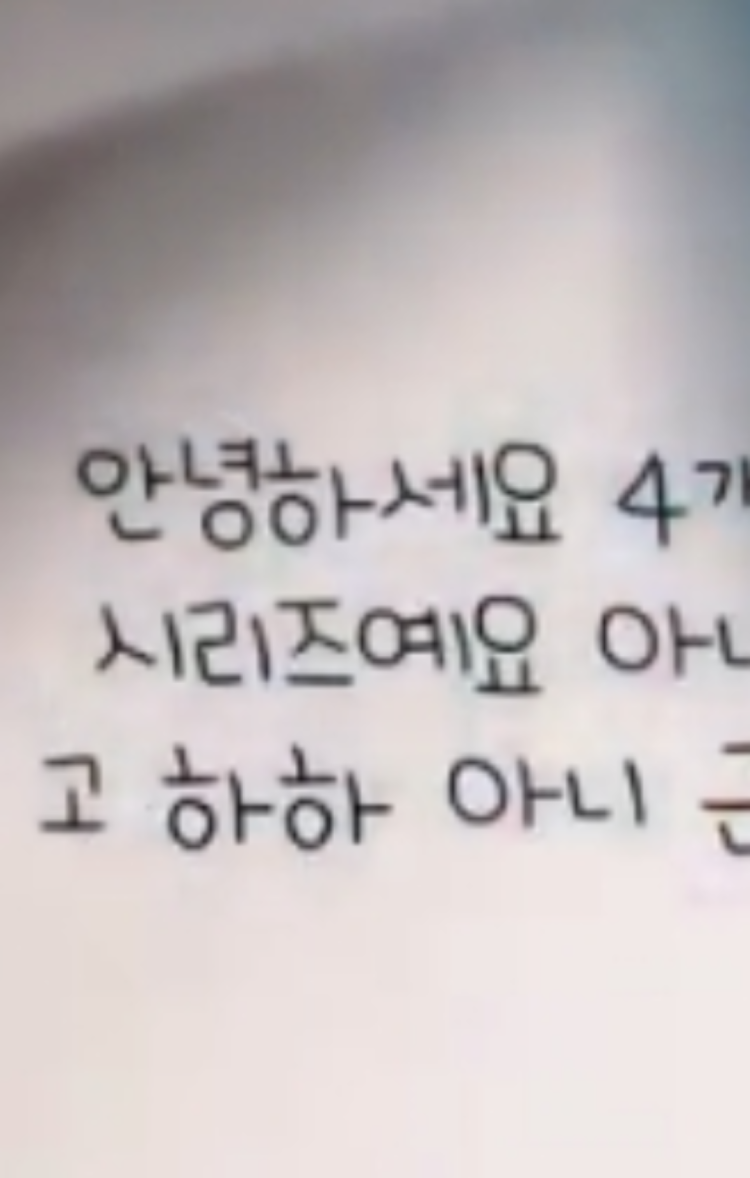 안녕하세요 4개
시리즈예요 아니
고 하하 아니